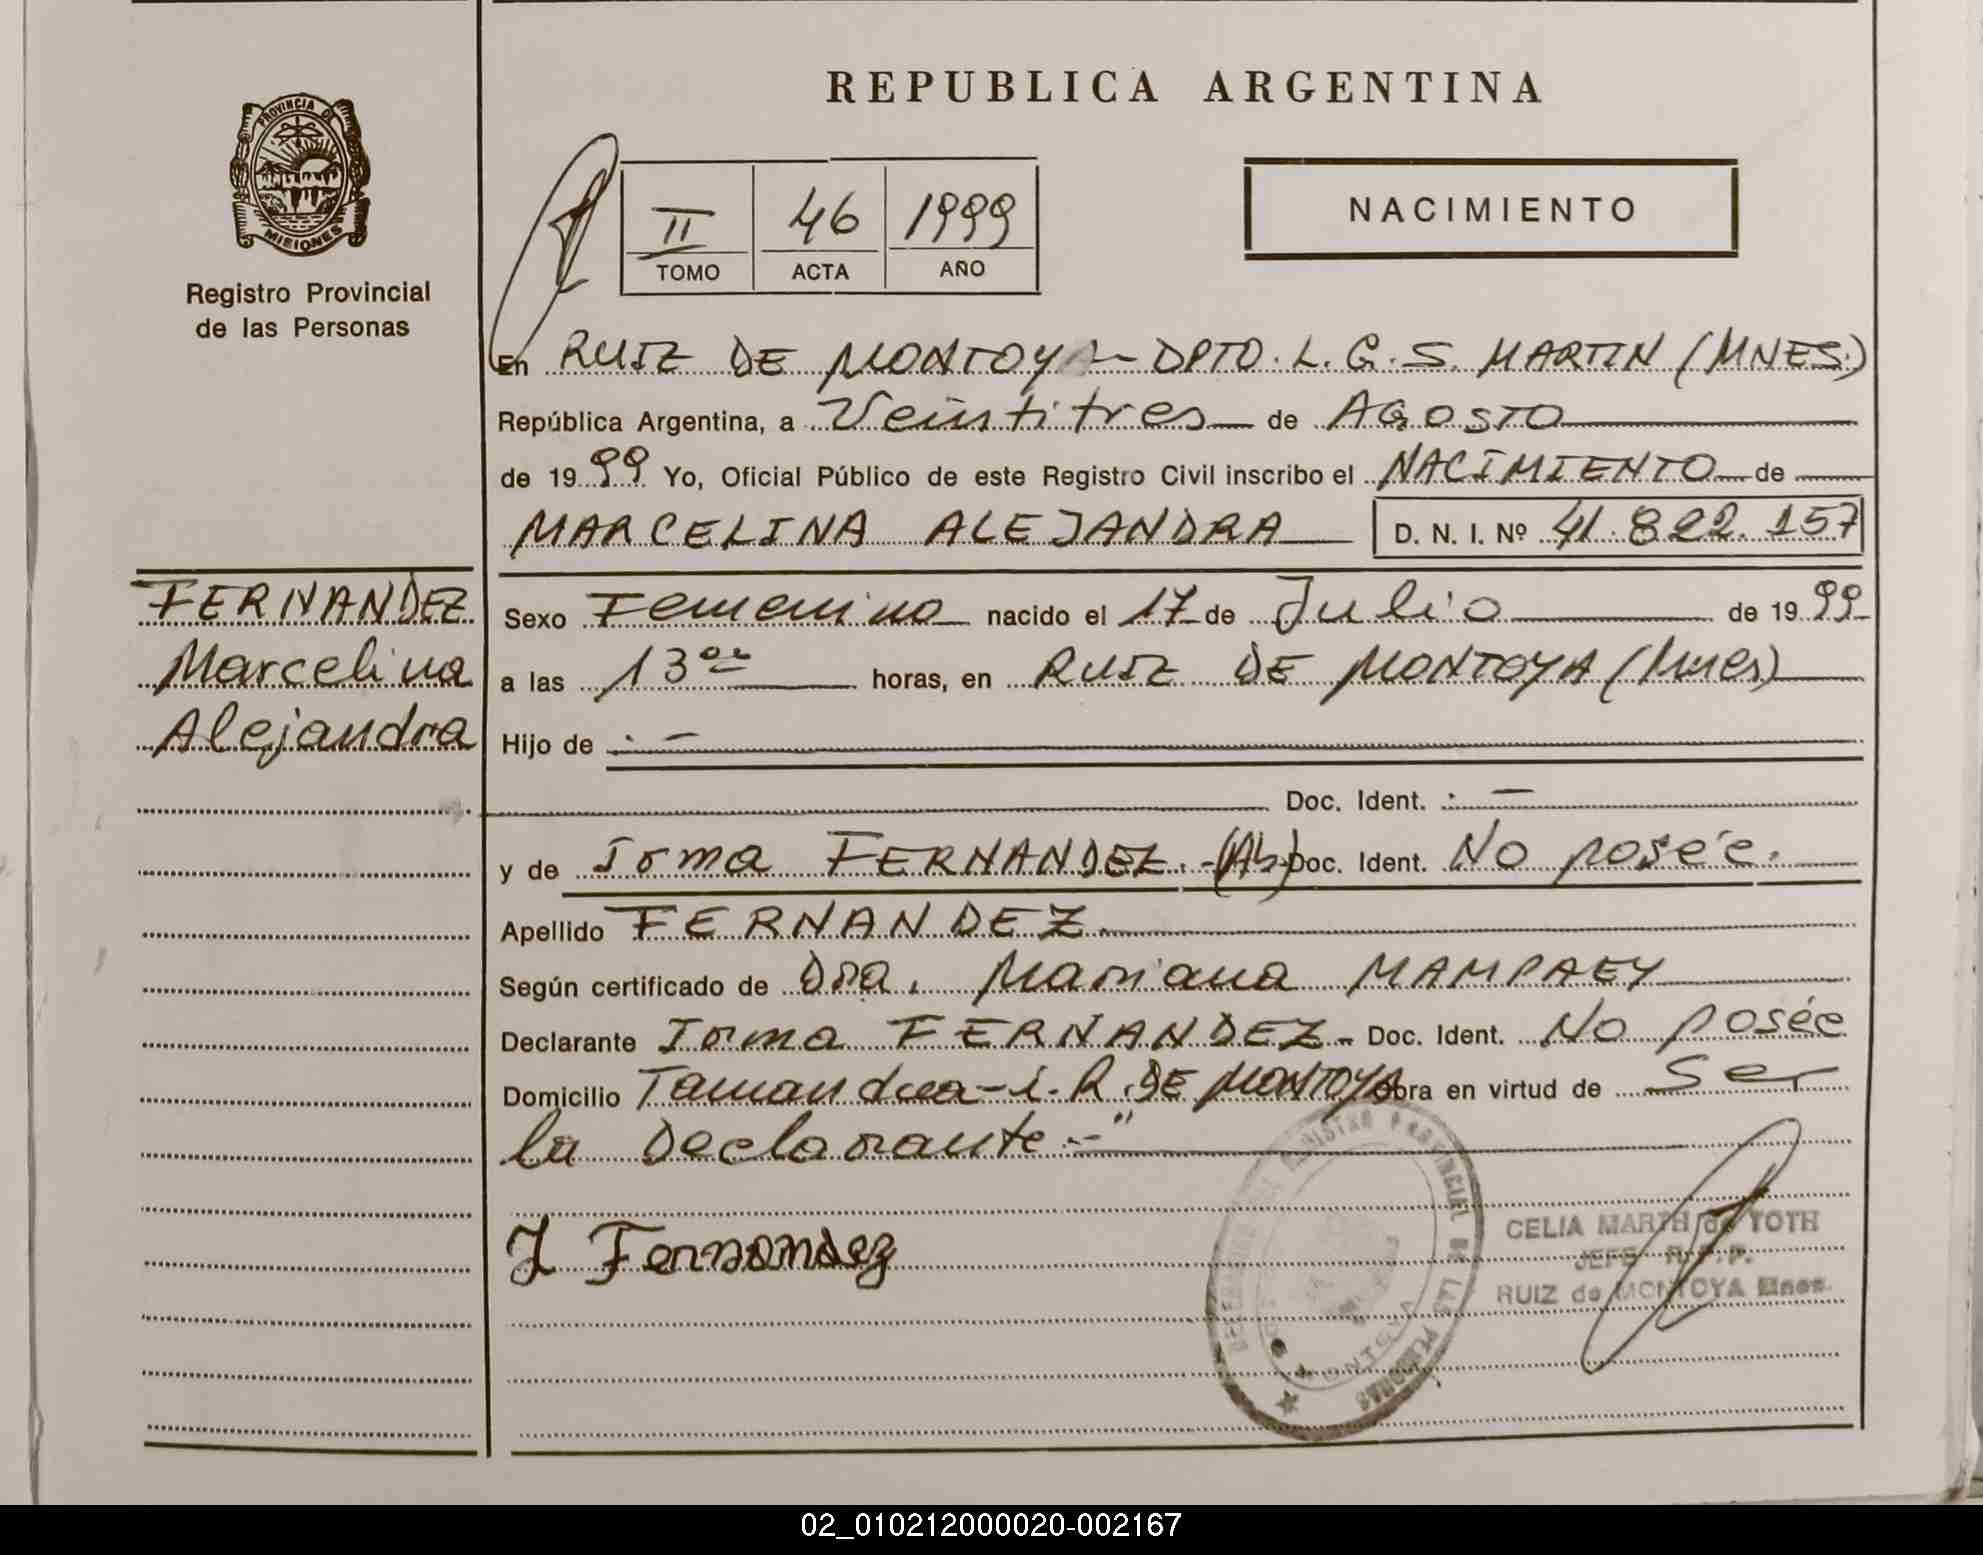 REPUBLICA ARGENTINA
PROVINCIA DE
MISIONES
Registro Provincial
de las Personas
II 46 1999
TOMO ACTA AÑO
NACIMIENTO
En RUIZ DE MONTOYA - DPTO. L. G. S. MARTIN (MNES.)
República Argentina, a Veintitres de AGOSTO
de 1999 Yo, Oficial Público de este Registro Civil inscribo el NACIMIENTO de
MARCELINA ALEJANDRA D. N. I. Nº 41.822.157
FERNANDEZ
Marcelina
Alejandra
Sexo Femenino nacido el 17 de Julio de 1999
a las 13 horas, en RUIZ DE MONTOYA (Mnes)
Hijo de . -
Doc. Ident. . -
y de Irma FERNANDEZ. - (Ab) Doc. Ident. No posée.
Apellido FERNANDEZ
Según certificado de Dra. Mariana MAMPAEY
Declarante Irma FERNANDEZ - Doc. Ident. No posée
Domicilio Tamandua - R. DE MONTOYA obra en virtud de Ser
la Declarante.-"
I Fernandez
REGISTRO PROVINCIAL DE LAS PERSONAS
CELIA de TOTH
JEFE R.P.P.
RUIZ de MONTOYA Mnes.
02_010212000020-002167